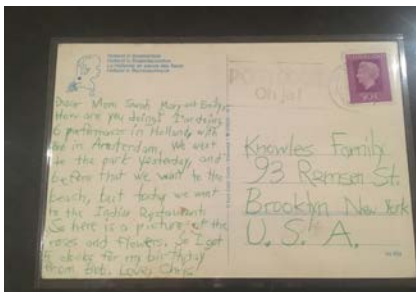 Holland is bloemenland
Dear Mom, Sarah, Mary and Emily,
How are you doing? I'm doing
6 performances in Holland, with
Bob in Amsterdam. We went
to the park yesterday, and
before that we went to the
beach, but today we went
to the Indian Restaurant.
So here is a picture of the
roses and flowers. So I got
5 books for my birthday
from Bob. Love, Chris
POSTCODE
Oh ja!
Knowles Family
93 Remsen St.
Brooklyn New York
U. S. A.